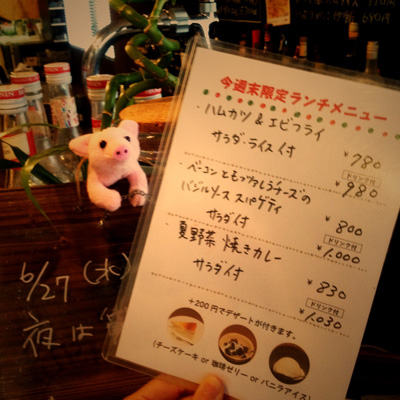 今週末限定ランチメニュー
ハムカツ & エビフライ
サラダ・ライス付 ¥780
ドリンク付
¥980
・ベーコンともッツァレラチーズの
バジルソース スパゲティ
サラダ付 ¥800
ドリンク付
¥1,000
・夏野菜 焼きカレー
サラダ付 ¥830
ドリンク付
¥1,030
+200円でデザートが付きます。
(チーズケーキ or 珈琲ゼリー or バニラアイス)
6/27 (水)
夜は